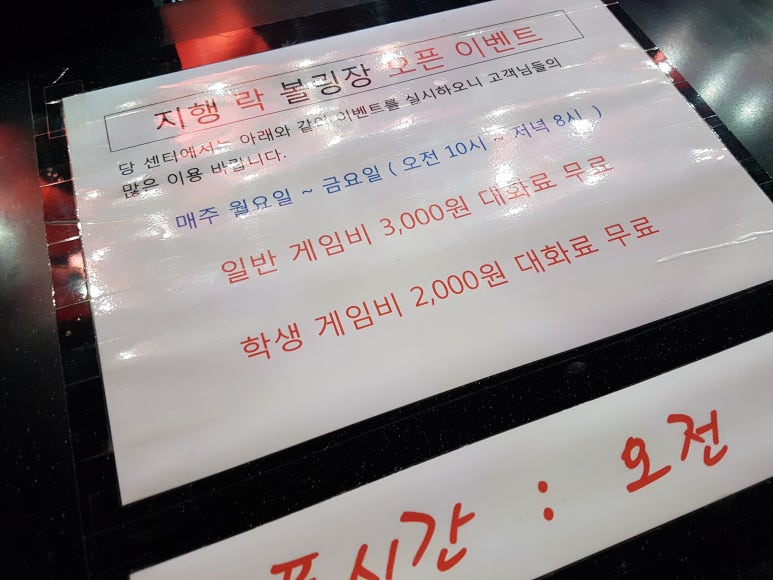 지행 락 볼링장 오픈 이벤트
당 센터에서는 아래와 같이 이벤트를 실시하오니 고객님들의
많은 이용 바랍니다.
매주 월요일 ~ 금요일 ( 오전 10시 ~ 저녁 8시 )
일반 게임비 3,000원 대화료 무료
학생 게임비 2,000원 대화료 무료
픈시간 : 오전